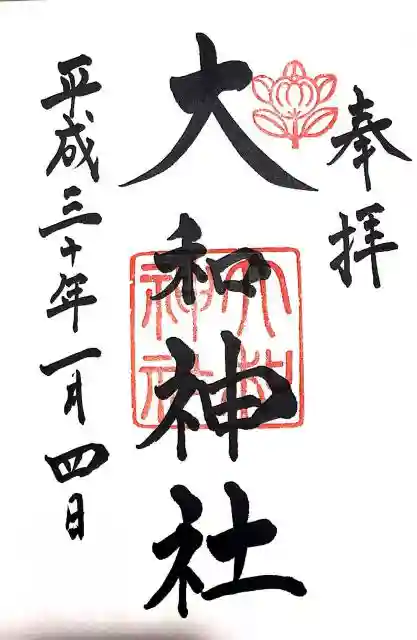 奉拝
大和神社
大和神社
平成三十年一月四日